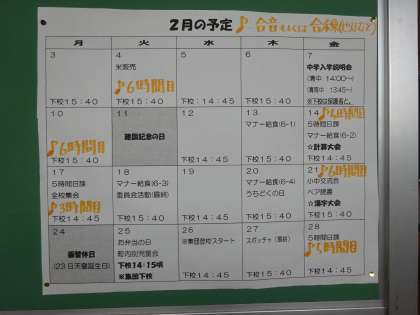 2月の予定 ♪合音もしくは合練
月 火 水 木 金
3
下校15:40
4
米販売
♪6時間目
下校15:40
5
下校14:45
6
下校15:40
7
中学入学説明会
(清中 14:00～)
13:45～)
10
♪6時間目
下校15:40
11
建国記念の日
12
下校14:45
13
マナー給食(6-1)
下校15:40
14 ♪6時間目
5時間日課
マナー給食(6-2)
☆計算大会
下校14:45
17
5時間日課
全校集会
♪3時間目
下校14:45
18
マナー給食(6-3)
委員会活動(最終)
下校15:40
19
下校14:45
20
マナー給食(6-4)
うちどくの日
下校15:40
21 ♪6時間目
小中交流会
ペア読書
☆漢字大会
下校14:45
24
振替休日
(23日天皇誕生日)
25
お弁当の日
町内別児童会
下校14:15頃
※集団下校
26
※集団登校スタート
下校14:45
27
スポッチャ(最終)
下校15:40
28
5時間日課
♪5時間目
下校14:45